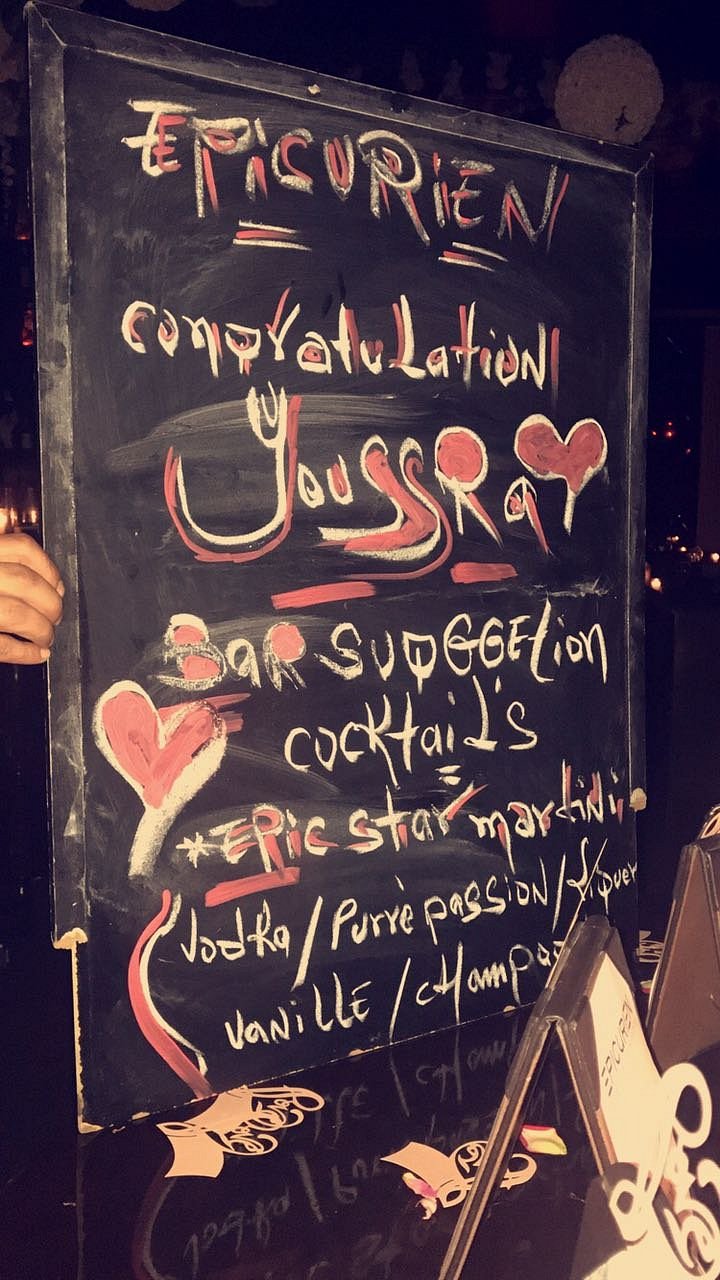 EPiCURiEN
congratulation
YoussRa
BaR suggGEtion
cocktail's
*EPic star martini
vodka/Purrè passion/liquer
vaniLLE/cHampa
EPICURIEN